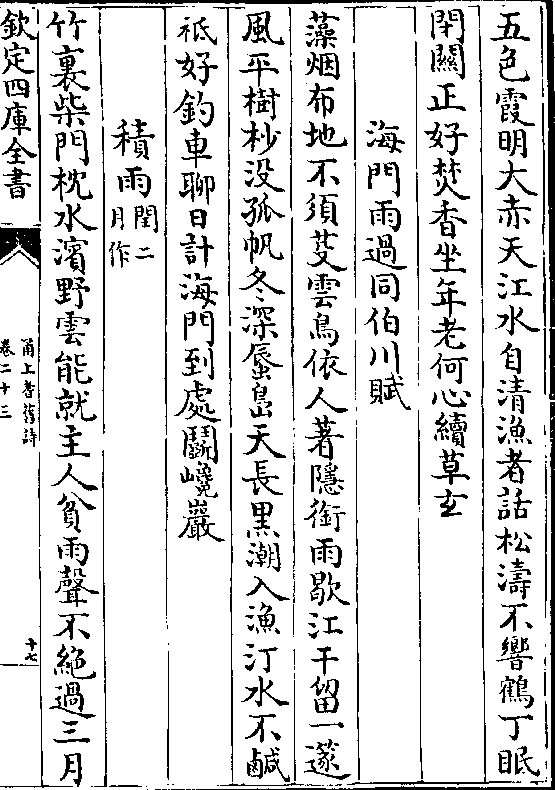 五色霞明大赤天江水自清漁者話松濤不響鶴丁眠
閉關正好焚香坐年老何心續草玄
海門雨過同伯川賦
藻烟布地不須芟雲鳥依人著隱銜雨歇江干留一邃
風平樹杪没孤帆冬深蜃島天長黒潮入漁汀水不鹹
祗好釣車聊日計海門到處鬭巉巖
積雨閏二月作
竹裏柴門枕水濱野雲能就主人貧雨聲不絶過三月
欽定四庫全書
甬上耆舊詩
卷二十三
十七